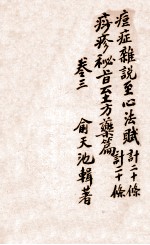 痘症雜說至心法賦 計二十條
痧疹秘旨至土方藥篇 計二十條
卷三
俞天池輯著